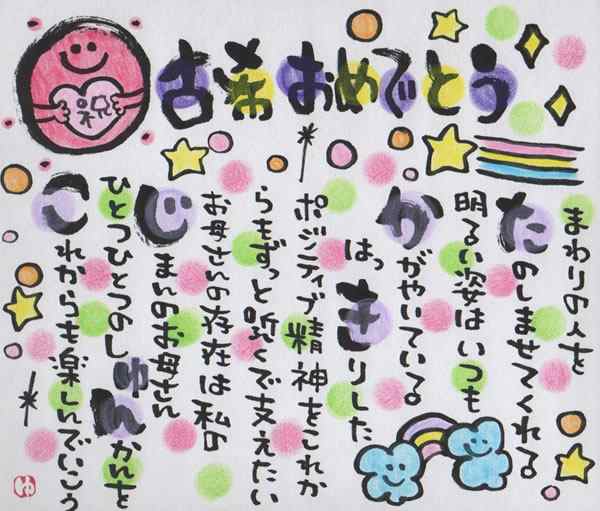 祝
古希おめでとう
まわりの人を
たのしませてくれる
明るい姿はいつも
かがやいている。
はっきりした
ポジティブ精神をこれか
らもずっと近くで支えたい
お母さんの存在は私の
じまんのお母さん
ひとつひとつのしゅんかんを
これからも楽しんでいこう
ゆ